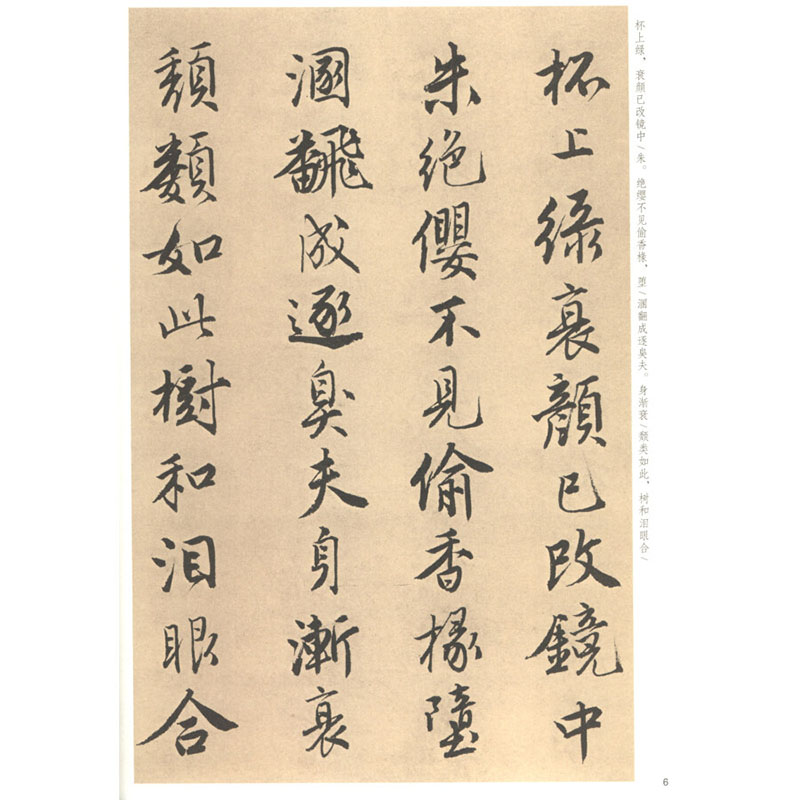 杯上绿，衰颜已改镜中/朱。绝缨不见偷香椽，堕/溷翻成逐臭夫。身渐衰/颓类如此，树和泪眼合/
杯上緑衰顔已改鏡中
朱絶纓不見偷香椽墮
溷飜成逐臭夫身漸衰
頹類如此樹和泪眼合
6